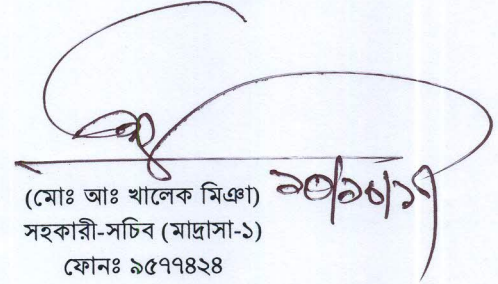 ১০/১০/১৭
(মোঃ আঃ খালেক মিঞা)
সহকারী-সচিব (মাদ্রাসা-১)
ফোনঃ ৯৫৭৭৪২৪